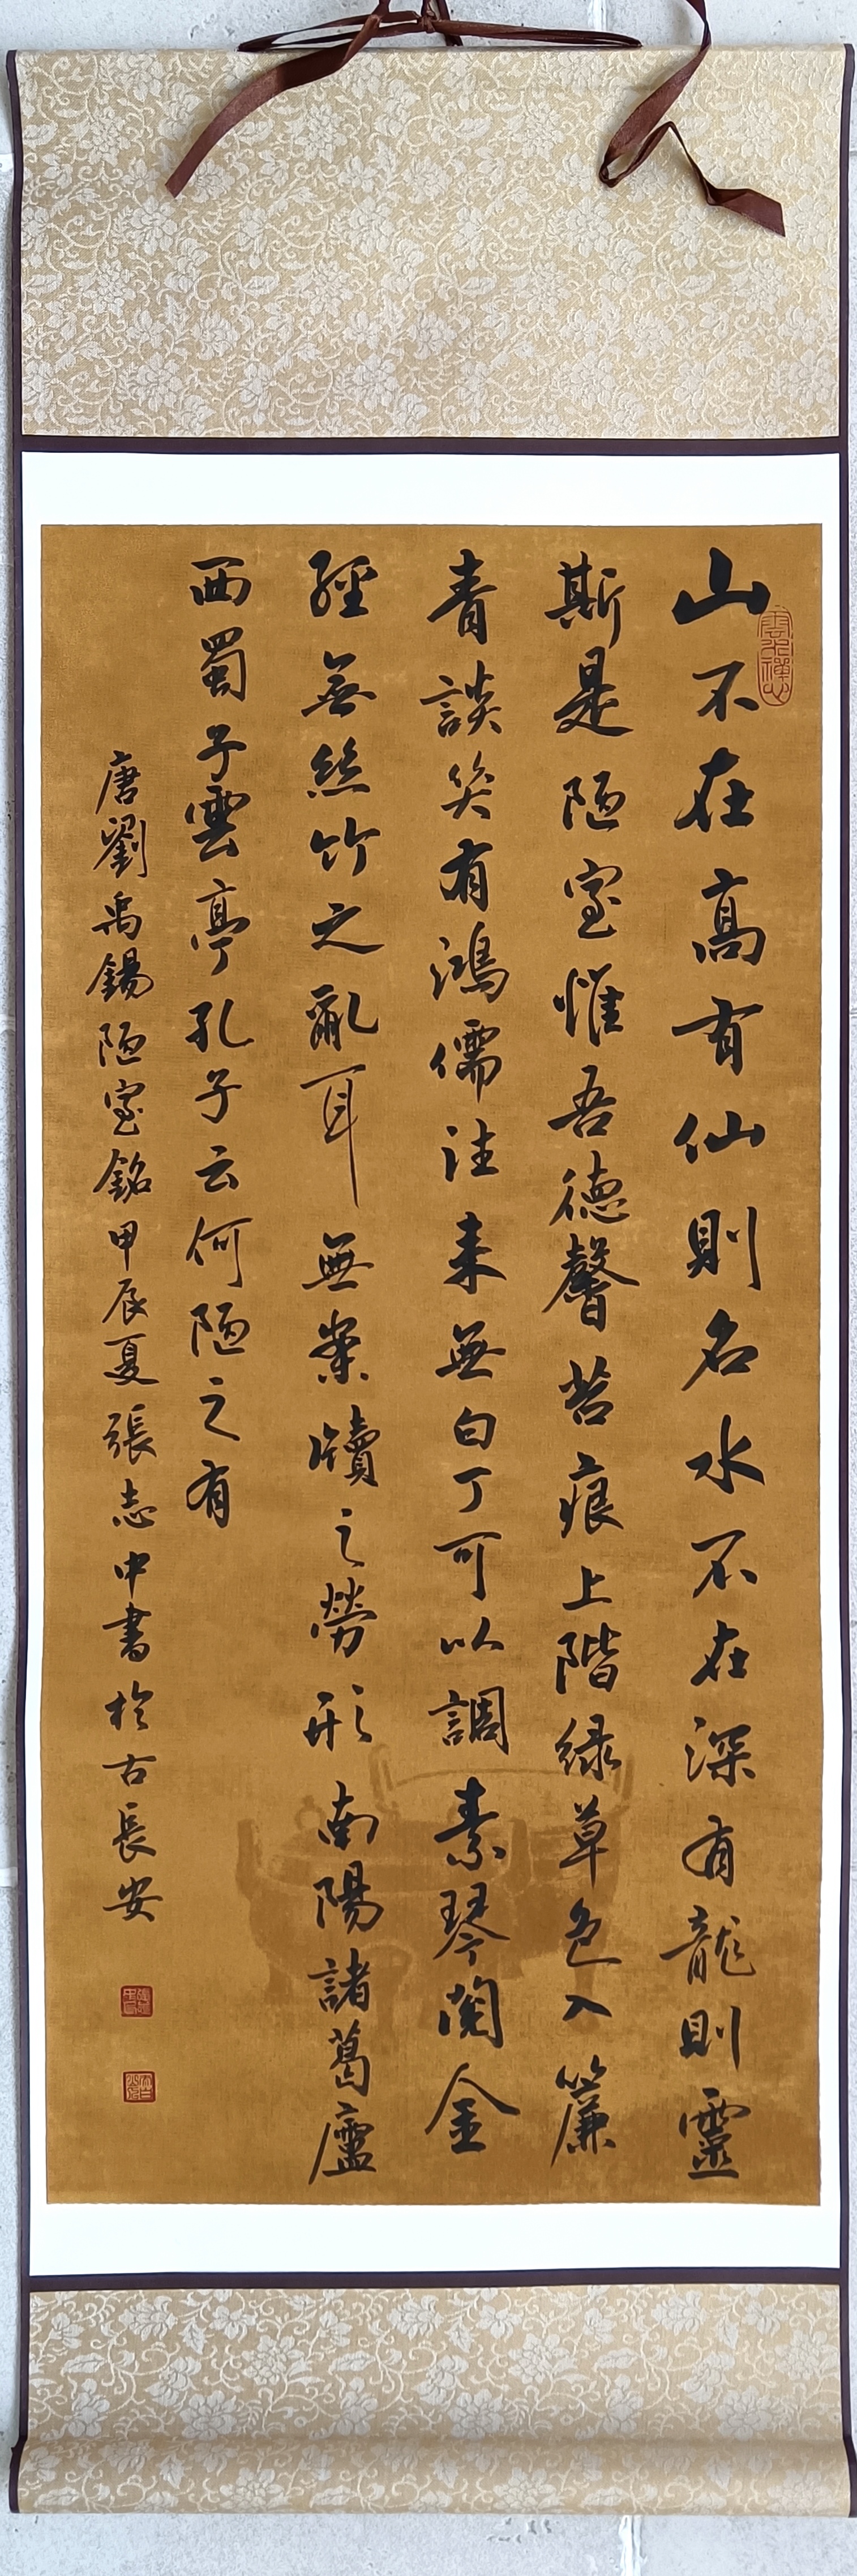 山不在高有仙則名水不在深有龍則靈
斯是陋室惟吾德馨苔痕上階緑草色入簾
青談笑有鴻儒往来無白丁可以調素琴閱金
經無絲竹之亂耳無案牘之勞形南陽諸葛廬
西蜀子雲亭孔子云何陋之有
唐劉禹錫陋室銘甲辰夏張志中書於古長安